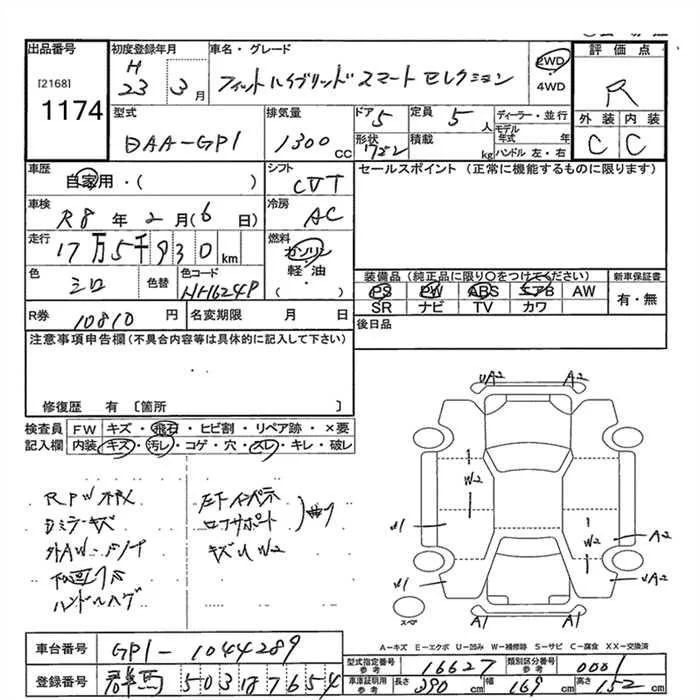 出品番号
[2168]
1174
初度登録年月
H 23 3月
車名・グレード
フィットハイブリッドスマートセレクション
2WD
・
4WD
評価点
R
外装 内装
C C
型式
DAA-GP1
排気量
1300 cc
ドア
5
定員
5 人
形状
積載
kg
ディーラー・並行
モデル年式 年
ハンドル 左・右
車歴
自家用・( )
シフト
CVT
セールスポイント (正常に機能するものに限ります)
車検
R8年2月(6日)
冷房
AC
走行
17万5千930km
燃料
ガソリン
軽・油
( )
色
シロ
色替
色コード
NH624P
装備品(純正品に限り〇をつけてください)
新車保証書
PS PW ABS エアB AW
SR ナビ TV カワ
有・無
R券
10810円
名変期限 月 日
後日品
注意事項申告欄(不具合内容等は具体的に記入して下さい)
修復歴 有〔箇所 〕
検査員記入欄
FW キズ・飛石・ヒビ割・リペア跡・×要
内装 キズ・汚レ・コゲ・穴・スレ・キレ・破レ
ロアサポート
キズU W2
ハンドルハゲ
UA2 A2
W2
W1
W2
A2
W1
UA2
A1 A1
スペア
A-キズ E-エクボ U-凹み W-補修跡 S-サビ C-腐食 XX-交換済
車台番号
GP1-1044289
登録番号
群馬 503 ひ 7654
型式指定番号 参考
16627
類別区分番号 参考
0001
車庫証明用 参考
長さ 390 cm
幅 169 cm
高さ 152 cm